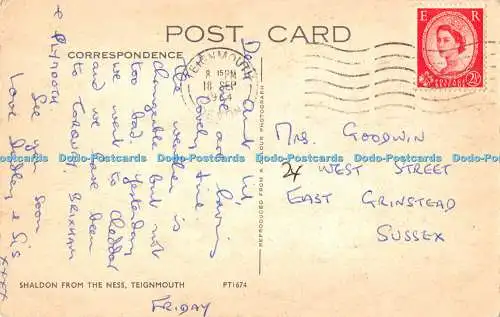 POST CARD
CORRESPONDENCE
TEIGNMOUTH
8 15 PM
18 SEP
E R
POSTAGE REVENUE
2½D
Dear Aunt Lil
We are having
a lovely time
the weather is
changeable but not
too bad. Yesterday
we went to Cheddar
and we have been
to TORQUAY, BRIXHAM
& PLYMOUTH.
See you soon
Love & Sis
XXXX
FRIDAY
MRS. GOODWIN
24 WEST STREET
EAST GRINSTEAD
SUSSEX
REPRODUCED FROM A COLOUR PHOTOGRAPH
SHALDON FROM THE NESS, TEIGNMOUTH
PT1674
Dodo-Postcards Dodo-Postcards Dodo-Postcards Dodo-Postcards Dodo-Postcards